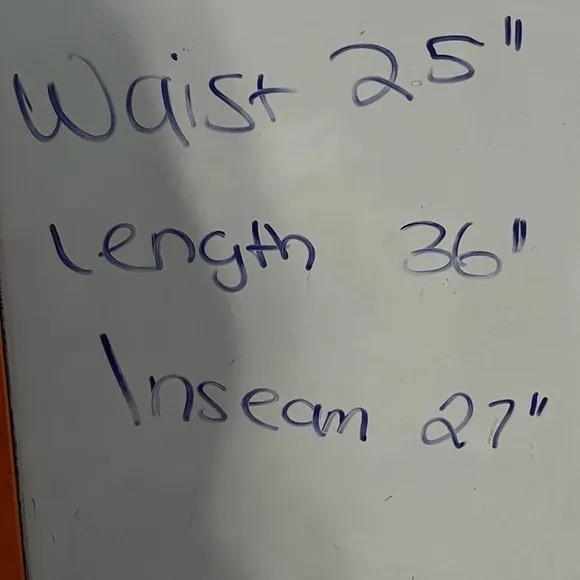 Waist 25"
Length 36"
Inseam 27"